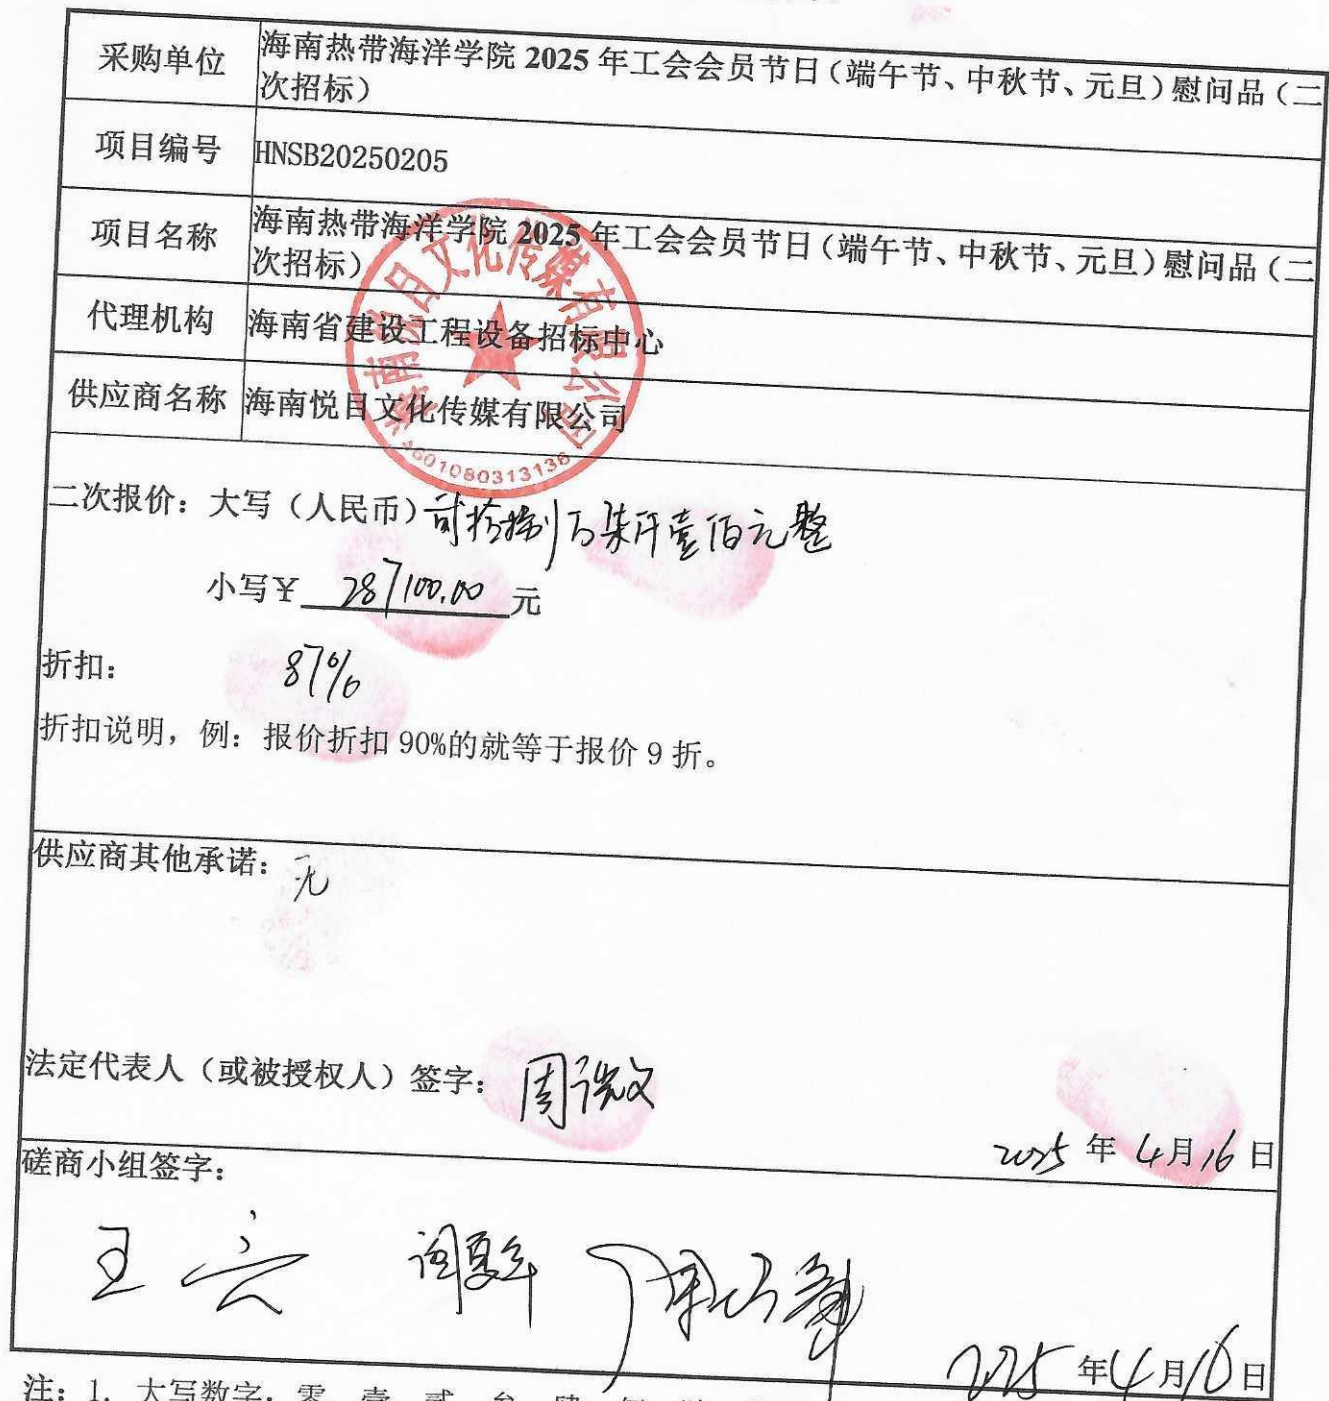 采购单位 海南热带海洋学院 2025 年工会会员节日（端午节、中秋节、元旦）慰问品（二
次招标）
项目编号 HNSB20250205
项目名称 海南热带海洋学院 2025 年工会会员节日（端午节、中秋节、元旦）慰问品（二
次招标）
代理机构 海南省建设工程设备招标中心
供应商名称 海南悦目文化传媒有限公司
海南悦目文化传媒有限公司
4601080313138
二次报价：大写（人民币）贰拾捌万柒仟壹佰元整
小写￥ 287100.00 元
折扣： 87%
折扣说明，例：报价折扣 90%的就等于报价 9 折。
供应商其他承诺：无
法定代表人（或被授权人）签字：周
2025 年 4月16日
磋商小组签字：
王
2025 年4月16日
注：1. 大写数字：零 壹 贰 叁 肆 伍